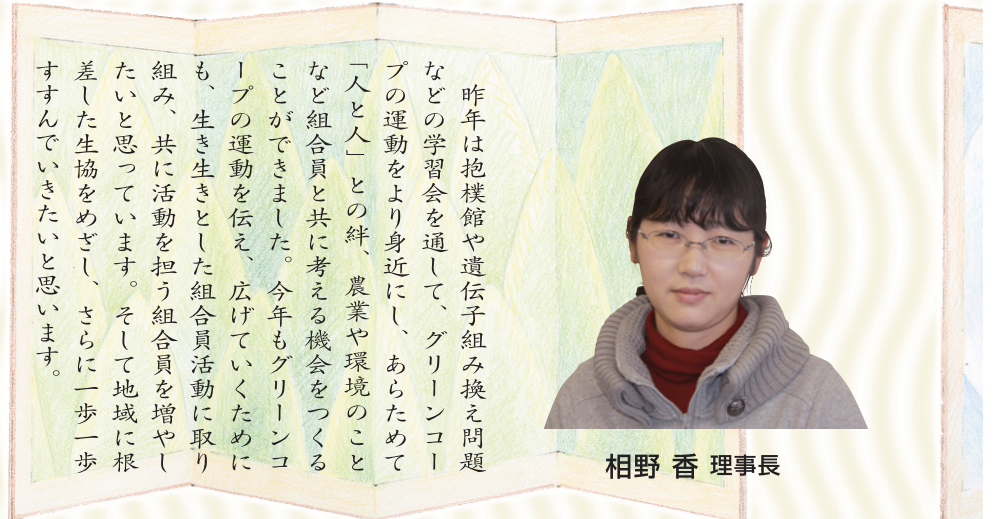 昨年は抱樸館や遺伝子組み換え問題
などの学習会を通して、グリーンコー
プの運動をより身近にし、あらためて
「人と人」との絆、農業や環境のこと
など組合員と共に考える機会をつくる
ことができました。今年もグリーンコ
ープの運動を伝え、広げていくために
も、生き生きとした組合員活動に取り
組み、共に活動を担う組合員を増やし
たいと思っています。そして地域に根
差した生協をめざし、さらに一歩一歩
すすんでいきたいと思います。
相野 香 理事長